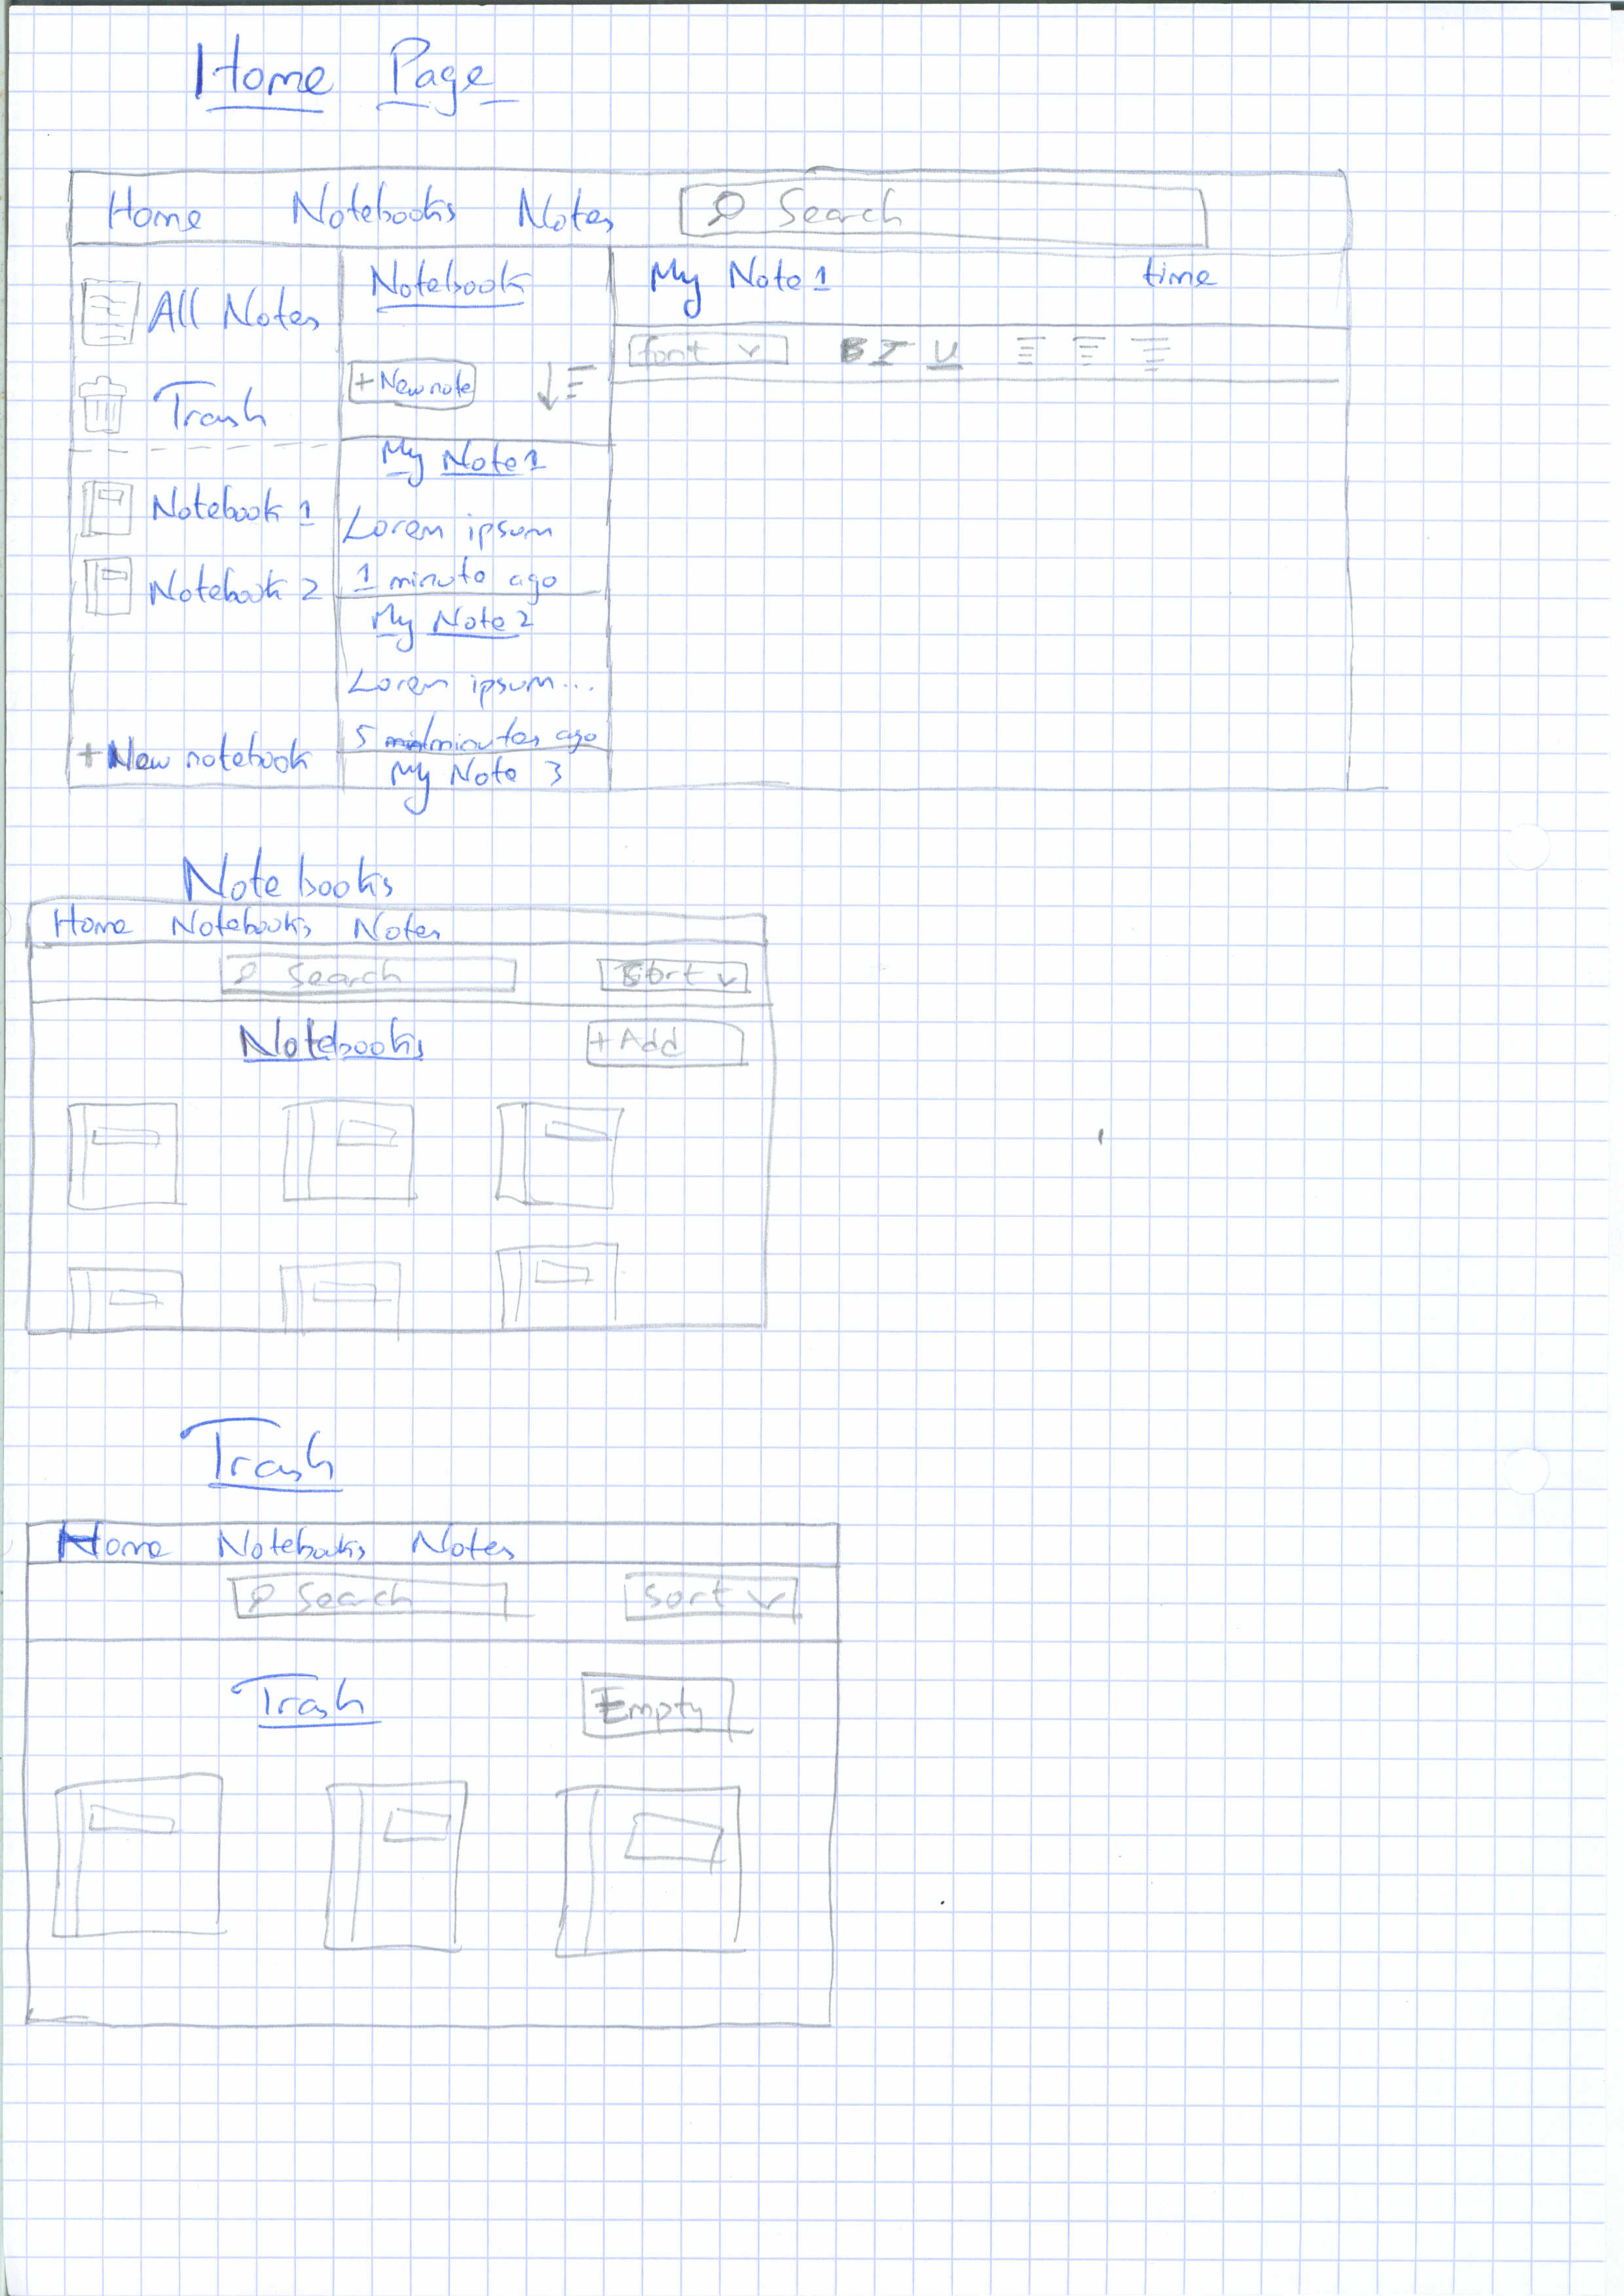 Home Page
Home Notebooks Notes Search
All Notes
Trash
Notebook 1
Notebook 2
+ New notebook
Notebook
+ New note
My Note 1
Lorem ipsum
1 minute ago
My Note 2
Lorem ipsum...
5 minutes ago
My Note 3
My Note 1 time
font B I U
Notebooks
Home Notebooks Notes
Search Sort
Notebooks + Add
Trash
Home Notebooks Notes
Search Sort
Trash Empty